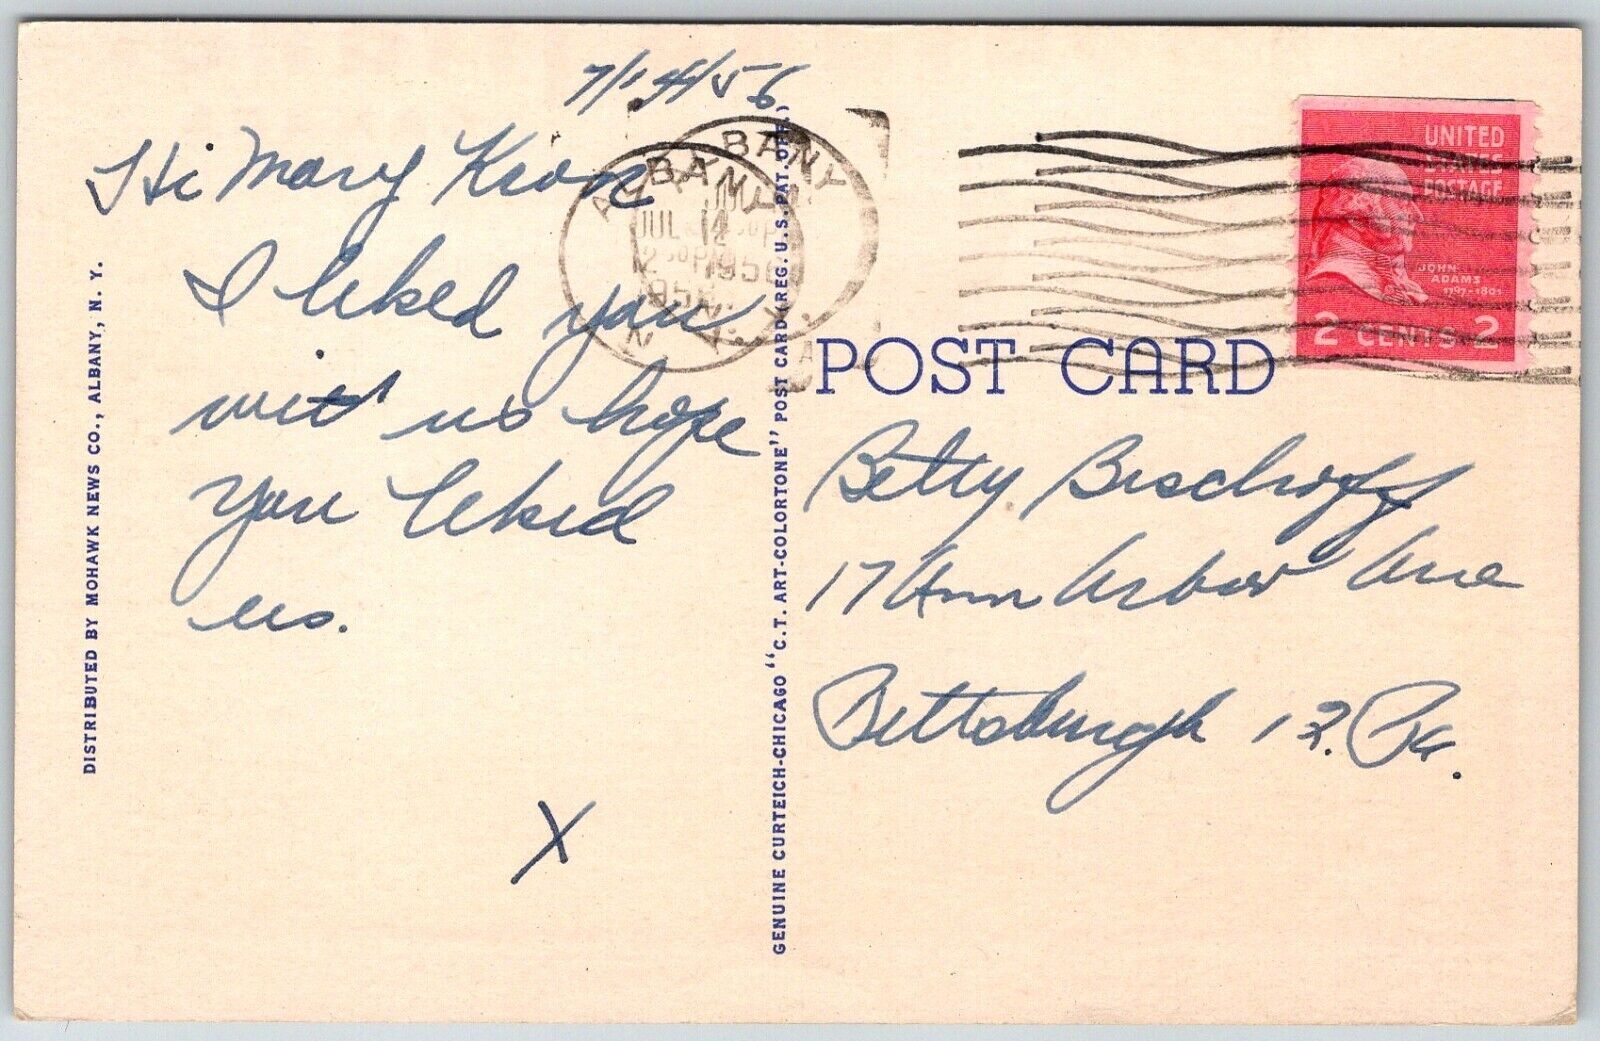 7/14/56
Hi Mary
I liked you
wit us hope
you liked
us.
X
DISTRIBUTED BY MOHAWK NEWS CO., ALBANY, N. Y.
GENUINE CURTEICH-CHICAGO "C.T. ART-COLORTONE" POST CARD (REG. U.S. PAT. OFF.)
ALBANY
JUL 12
1956
N.Y.
UNITED
STATES
POSTAGE
JOHN
ADAMS
1797-1801
2 CENTS 2
POST CARD
Betty Bischoff
17 Ann Arbor Ave
Pittsburgh 13. Pa.